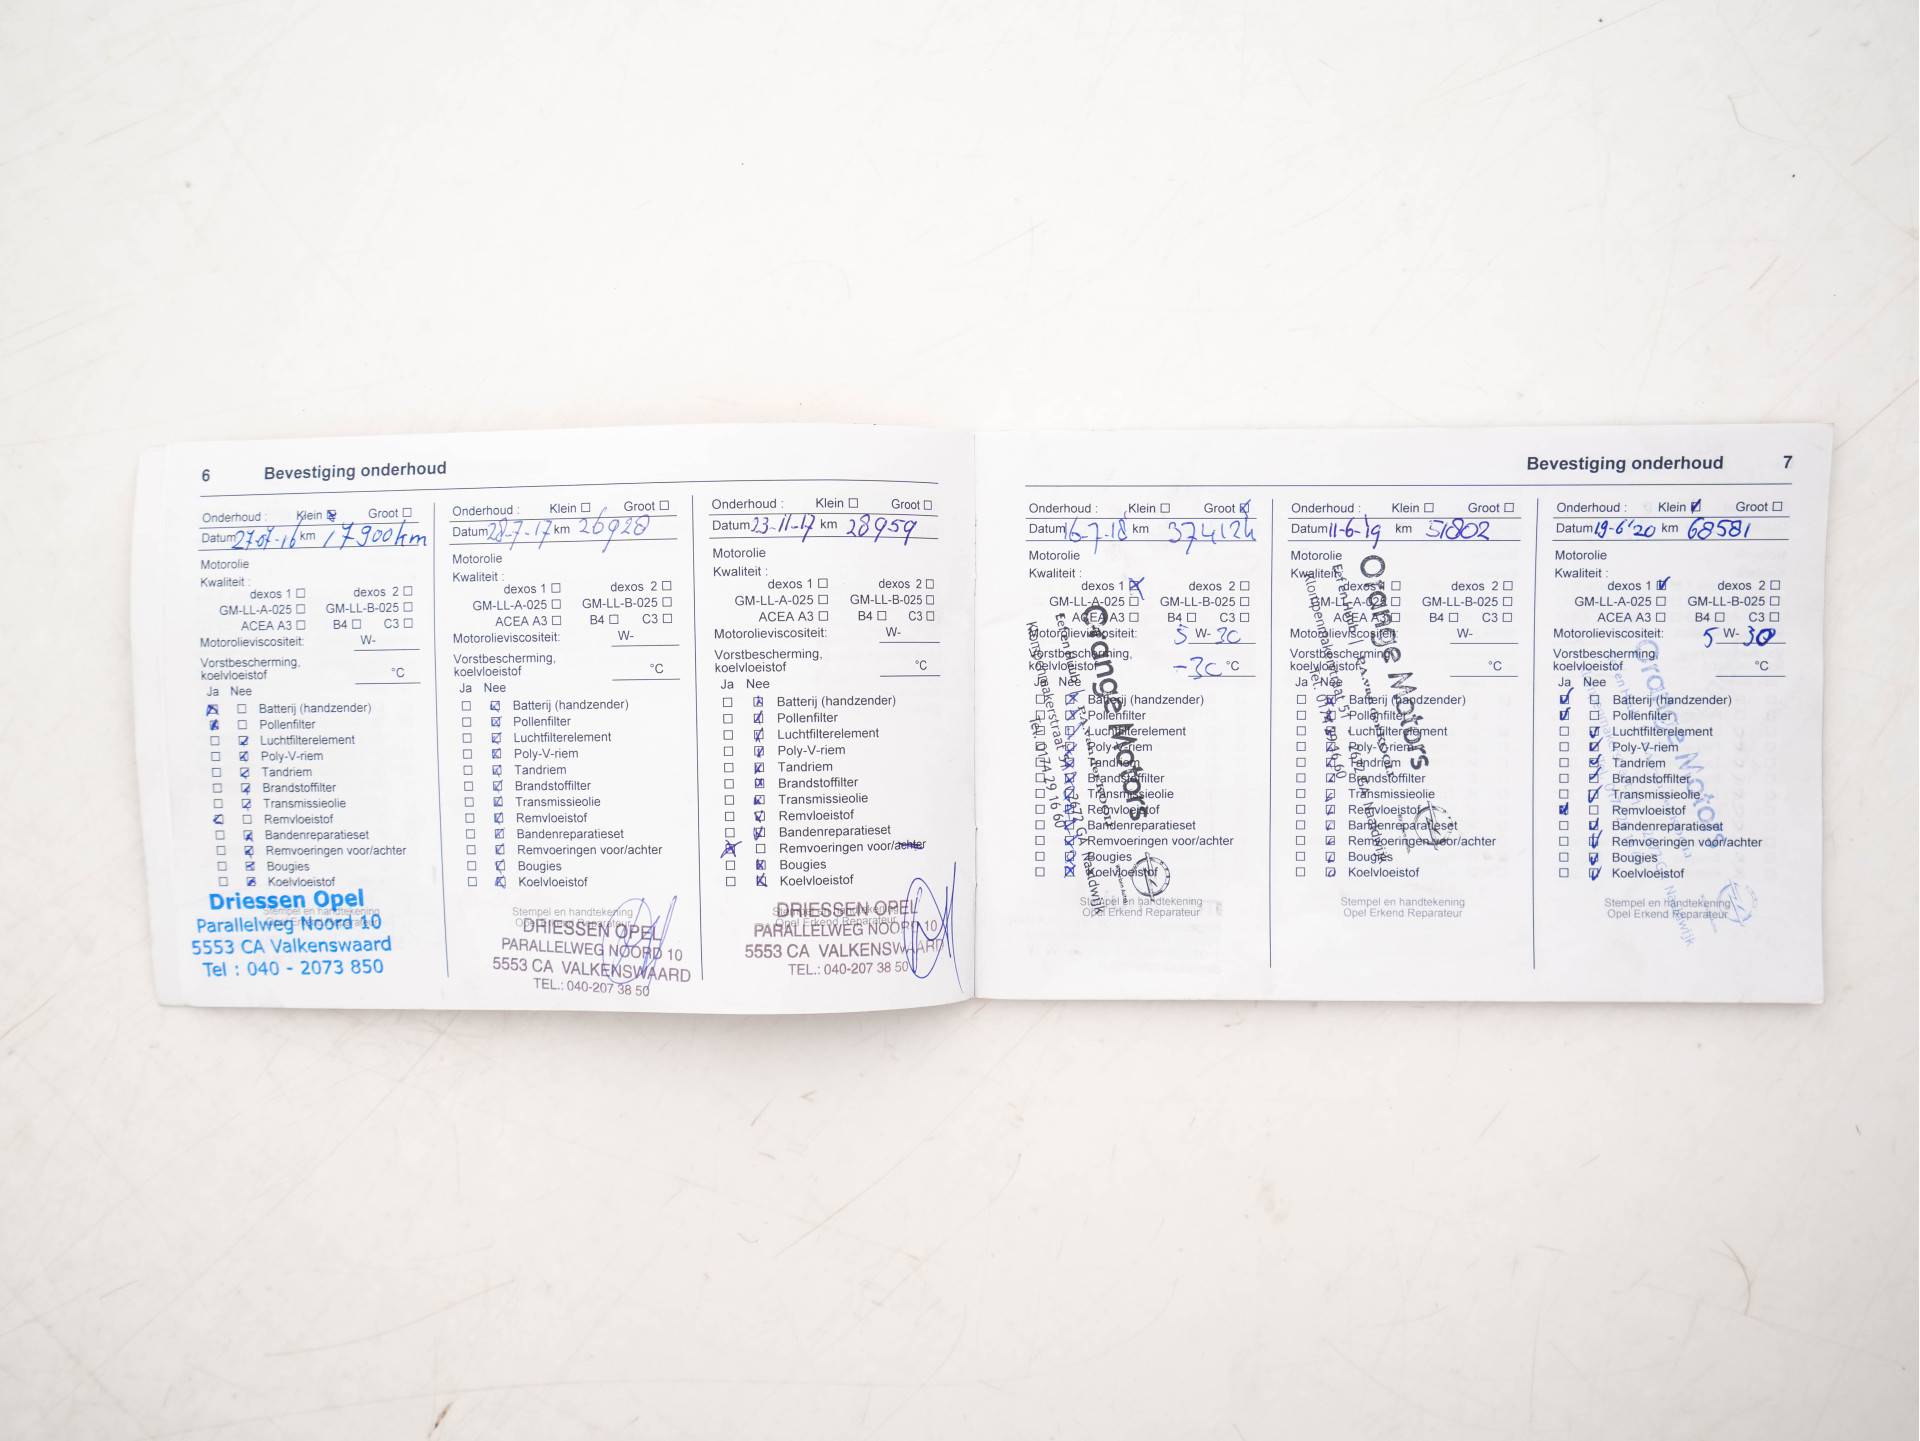 6 Bevestiging onderhoud
Onderhoud : Klein ☒ Groot ☐
Datum 27-07-16 km 17900km
Motorolie
Kwaliteit :
dexos 1 ☐ dexos 2 ☐
GM-LL-A-025 ☐ GM-LL-B-025 ☐
ACEA A3 ☐ B4 ☐ C3 ☐
Motorolieviscositeit: W-
Vorstbescherming,
koelvloeistof °C
Ja Nee
Batterij (handzender)
Pollenfilter
Luchtfilterelement
Poly-V-riem
Tandriem
Brandstoffilter
Transmissieolie
Remvloeistof
Bandenreparatieset
Remvoeringen voor/achter
Bougies
Koelvloeistof
Stempel en handtekening
Opel Erkend Reparateur
Driessen Opel
Parallelweg Noord 10
5553 CA Valkenswaard
Tel : 040 - 2073 850
Onderhoud : Klein ☐ Groot ☐
Datum 28-7-17 km 26928
Motorolie
Kwaliteit :
dexos 1 ☐ dexos 2 ☐
GM-LL-A-025 ☐ GM-LL-B-025 ☐
ACEA A3 ☐ B4 ☐ C3 ☐
Motorolieviscositeit: W-
Vorstbescherming,
koelvloeistof °C
Ja Nee
Batterij (handzender)
Pollenfilter
Luchtfilterelement
Poly-V-riem
Tandriem
Brandstoffilter
Transmissieolie
Remvloeistof
Bandenreparatieset
Remvoeringen voor/achter
Bougies
Koelvloeistof
Stempel en handtekening
Opel Erkend Reparateur
DRIESSEN OPEL
PARALLELWEG NOORD 10
5553 CA VALKENSWAARD
TEL.: 040-207 38 50
Onderhoud : Klein ☐ Groot ☐
Datum 23-11-17 km 28959
Motorolie
Kwaliteit :
dexos 1 ☐ dexos 2 ☐
GM-LL-A-025 ☐ GM-LL-B-025 ☐
ACEA A3 ☐ B4 ☐ C3 ☐
Motorolieviscositeit: W-
Vorstbescherming,
koelvloeistof °C
Ja Nee
Batterij (handzender)
Pollenfilter
Luchtfilterelement
Poly-V-riem
Tandriem
Brandstoffilter
Transmissieolie
Remvloeistof
Bandenreparatieset
Remvoeringen voor/achter
Bougies
Koelvloeistof
Stempel en handtekening
Opel Erkend Reparateur
DRIESSEN OPEL
PARALLELWEG NOORD 10
5553 CA VALKENSWAARD
TEL.: 040-207 38 50
Bevestiging onderhoud 7
Onderhoud : Klein ☐ Groot ☒
Datum 16-7-18 km
Motorolie
Kwaliteit :
dexos 1 ☒ dexos 2 ☐
GM-LL-A-025 ☐ GM-LL-B-025 ☐
ACEA A3 ☐ B4 ☐ C3 ☐
Motorolieviscositeit: 5 W- 30
Vorstbescherming,
koelvloeistof -30 °C
Ja Nee
Batterij (handzender)
Pollenfilter
Luchtfilterelement
Poly-V-riem
Tandriem
Brandstoffilter
Transmissieolie
Remvloeistof
Bandenreparatieset
Remvoeringen voor/achter
Bougies
Koelvloeistof
Stempel en handtekening
Opel Erkend Reparateur
Orange Motors
Tel. 0174 29 16 60
Onderhoud : Klein ☐ Groot ☐
Datum 11-6-19 km 51802
Motorolie
Kwaliteit :
dexos 1 ☐ dexos 2 ☐
GM-LL-A-025 ☐ GM-LL-B-025 ☐
ACEA A3 ☐ B4 ☐ C3 ☐
Motorolieviscositeit: W-
Vorstbescherming,
koelvloeistof °C
Ja Nee
Batterij (handzender)
Pollenfilter
Luchtfilterelement
Poly-V-riem
Tandriem
Brandstoffilter
Transmissieolie
Remvloeistof
Bandenreparatieset
Remvoeringen voor/achter
Bougies
Koelvloeistof
Stempel en handtekening
Opel Erkend Reparateur
Orange Motors
Onderhoud : Klein ☒ Groot ☐
Datum 19-6-'20 km 68581
Motorolie
Kwaliteit :
dexos 1 ☒ dexos 2 ☐
GM-LL-A-025 ☐ GM-LL-B-025 ☐
ACEA A3 ☐ B4 ☐ C3 ☐
Motorolieviscositeit: 5 W- 30
Vorstbescherming,
koelvloeistof °C
Ja Nee
Batterij (handzender)
Pollenfilter
Luchtfilterelement
Poly-V-riem
Tandriem
Brandstoffilter
Transmissieolie
Remvloeistof
Bandenreparatieset
Remvoeringen voor/achter
Bougies
Koelvloeistof
Stempel en handtekening
Opel Erkend Reparateur
Orange Motors